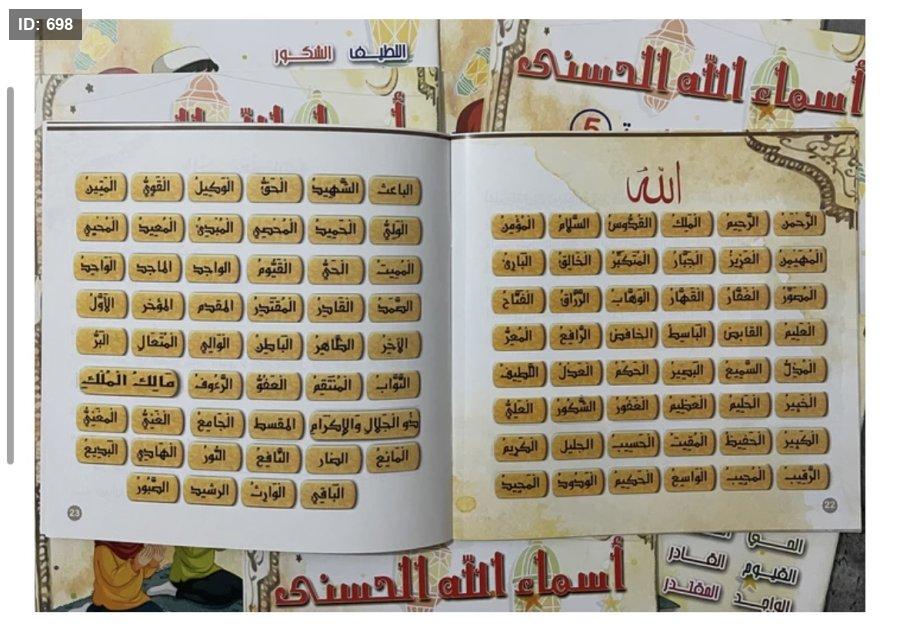 ID: 698
اللطيف الشكور
أسماء الله الحسنى
5
الله
الرَّحْمَن الرَّحِيم المَلِك القُدُّوس السَّلَام المُؤْمِن
المُهَيْمِن العَزِيز الجَبَّار المُتَكَبِّر الخَالِق البَارِئ
المُصَوِّر الغَفَّار القَهَّار الوَهَّاب الرَّزَّاق الفَتَّاح
العَلِيم القَابِض البَاسِط الخَافِض الرَّافِع المُعِزّ
المُذِلّ السَّمِيع البَصِير الحَكَم العَدْل اللَّطِيف
الخَبِير الحَلِيم العَظِيم الغَفُور الشَّكُور العَلِيّ
الكَبِير الحَفِيظ المُقِيت الحَسِيب الجَلِيل الكَرِيم
الرَّقِيب المُجِيب الوَاسِع الحَكِيم الوَدُود المَجِيد
22
البَاعِث الشَّهِيد الحَقّ الوَكِيل القَوِيّ المَتِين
الوَلِيّ الحَمِيد المُحْصِي المُبْدِئ المُعِيد المُحْيِي
المُمِيت الحَيّ القَيُّوم الوَاجِد المَاجِد الوَاحِد
الصَّمَد القَادِر المُقْتَدِر المُقَدِّم المُؤَخِّر الأَوَّل
الآخِر الظَّاهِر البَاطِن الوَالِي المُتَعَال البَرّ
التَّوَّاب المُنْتَقِم العَفُوّ الرَّءُوف مَالِكُ المُلْك
ذُو الجَلَال وَالإِكْرَام المُقْسِط الجَامِع الغَنِيّ المُغْنِي
المَانِع الضَّار النَّافِع النُّور الهَادِي البَدِيع
البَاقِي الوَارِث الرَّشِيد الصَّبُور
23
أسماء الله الحسنى
الحي
القيوم القادر
الواجد المقتدر